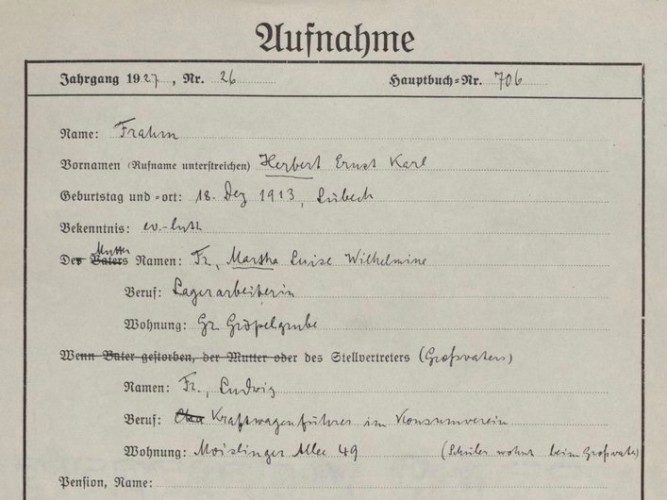 Aufnahme
Jahrgang 1927, Nr. 26 Hauptbuch-Nr. 706
Name: Frahm
Vornamen (Rufname unterstreichen) Herbert Ernst Karl
Geburtstag und -ort: 18. Dez 1913, Lübeck
Bekenntnis: ev.-luth
Des Vaters Mutter Namen: Fr., Martha Luise Wilhelmine
Beruf: Lagerarbeiterin
Wohnung: Gr Gröpelgrube
Wenn Vater gestorben, der Mutter oder des Stellvertreters (Großvaters)
Namen: Fr., Ludwig
Beruf: Kraftwagenführer im Konsumverein
Wohnung: Moislinger Allee 49 (Schüler wohnt beim Großvater)
Pension, Name: